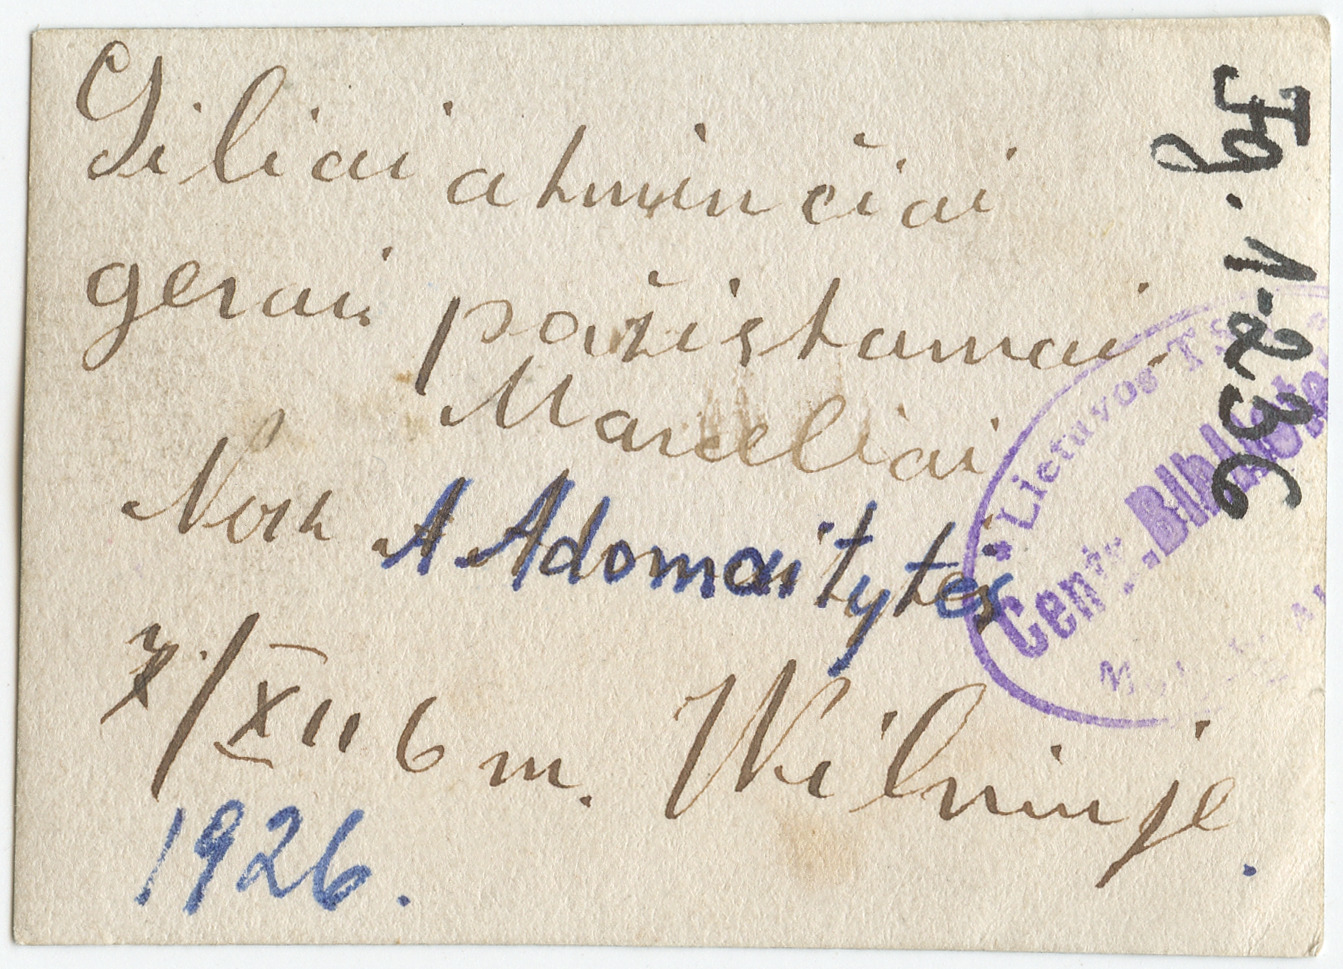 Giliai atminčiai
gerai pažįstamai.
Marceliai
Nuo A Adomaitytės
7/XII 6 m. Wilniuje.
1926.
Fg. 1-236
Lietuvos TS
Centr. Bibliote